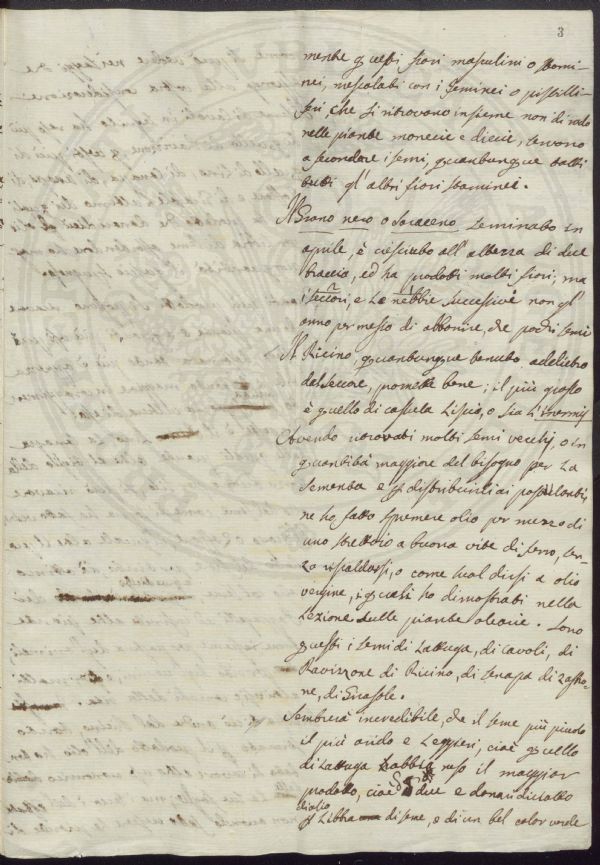 3
mentre questi fiori masculini o stami-
nei, mescolati con i feminei o pistilli-
feri, che si ritrovano insieme non di rado
nelle piante monecie e diecie, servono
a fecondare i semi, quantunque
tutti gl'altri fiori staminei.
Il Grano nero o Saraceno seminato in
aprile, è cresciuto all'altezza di due
braccia, ed ha prodotti molti fiori; ma
i seccori, e le nebbie successive non gl'
anno permesso di abbonire, che pochi semi
Il Ricino, quantunque tenuto addietro
dal seccore, promette bene; il più grosso
è quello di casula liscia, o sia inermis
Avendo ritrovati molti semi vecchi, o in
quantità maggiore del bisogno per la
sementa e distribuirli ai
ne ho fatto spremere olio per mezzo di
uno strettoio a buona vite di ferro, sen-
za riscaldarsi, o come suol dirsi a olio
vergine, i quali ho dimostrati nella
Lezione sulle piante oleacie. Sono
questi i semi di Lattuga, di cavoli, di
Ravizzone di Ricino, di senapa di Zaffro-
ne, di Girasole.
Sembrerà incredibile, che il seme più piccolo
il più arido e leggieri, cioè quello
di Lattuga abbia reso il maggior
prodotto, cioè due e denari diciotto
d'olio
Libbra di seme, e di un bel color verde